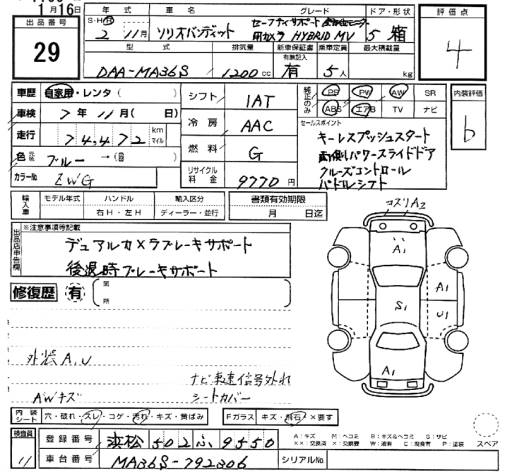 1月16日
出品番号
29
年式
グレード
ドア・形状
評価点
S・H
2年11月
ソリオバンディット
セーフティサポート
HYBRID MV
5
箱
4
型式
排気量
新車保証書
乗車定員
最大積載量
有無記入
DAA-MA36S
1200cc
有
5人
kg
車歴
自家用・レンタ
シフト
IAT
純正のみ
PS
PW
AW
SR
ABS
エアB
TV
ナビ
内装評価
b
車検
7年11月( 日)
冷房
AAC
走行
74,472
km
マイル
燃料
G
セールスポイント
キーレスプッシュスタート
両側パワースライドドア
クルーズコントロール
パドルシフト
色
ブルー→( )
カラーNo
ZWG
リサイクル料金
9770円
輸入車
モデル年式
ハンドル
右H・左H
輸入区分
ディーラー・並行
書類有効期限
月 日迄
出品店申告欄
※注意事項等記載
デュアルカメラブレーキサポート
後退時ブレーキサポート
修復歴
有
箇所
コスリA2
A1
A1
S1
U1
A1
外装A,U
AWキズ
ナビ車速信号外れ
シートカバー
内装
シート
穴・破れ・スレ・コゲ・汚れ・キズ・黄ばみ
Fガラス
キズ・飛石・×要す
検査員
11
登録番号
浜松502ふ9550
車台番号
MA36S-792306
シリアルNo
スペア